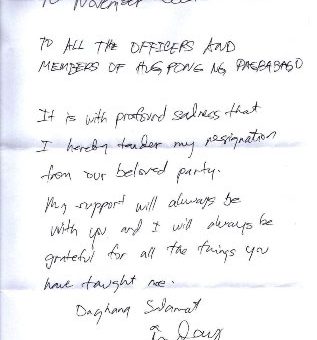 10 November
TO ALL THE OFFICERS AND
MEMBERS OF HUGPONG NG PAGBABAGO
It is with profound sadness that
I hereby tender my resignation
from our beloved party.
My support will always be
with you and I will always be
grateful for all the things you
have taught me.
Daghang Salamat